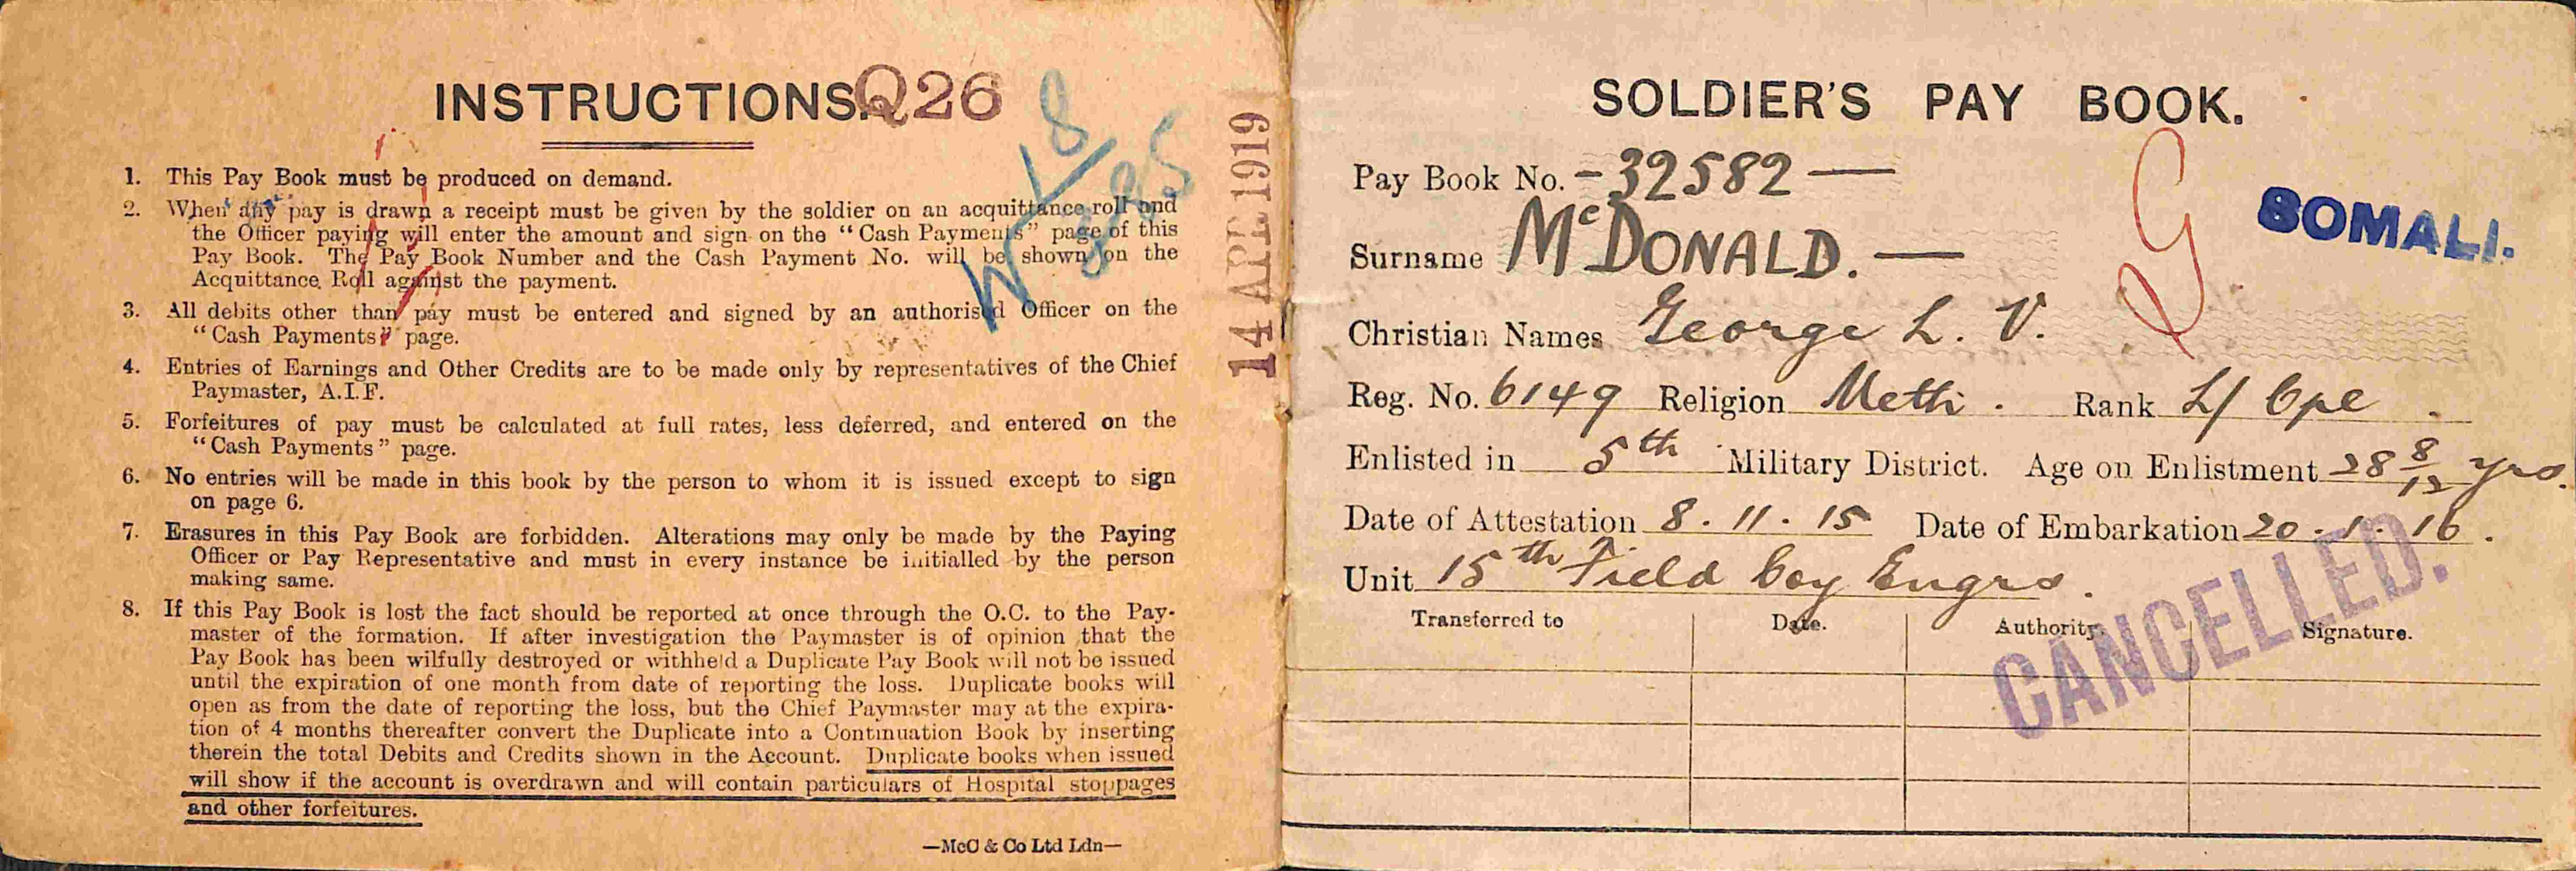 INSTRUCTIONS.
Q26
1. This Pay Book must be produced on demand.
2. When any pay is drawn a receipt must be given by the soldier on an acquittance roll and
the Officer paying will enter the amount and sign on the “Cash Payments” page of this
Pay Book. The Pay Book Number and the Cash Payment No. will be shown on the
Acquittance Roll against the payment.
3. All debits other than pay must be entered and signed by an authorised Officer on the
“Cash Payments” page.
4. Entries of Earnings and Other Credits are to be made only by representatives of the Chief
Paymaster, A.I.F.
5. Forfeitures of pay must be calculated at full rates, less deferred, and entered on the
“Cash Payments” page.
6. No entries will be made in this book by the person to whom it is issued except to sign
on page 6.
7. Erasures in this Pay Book are forbidden. Alterations may only be made by the Paying
Officer or Pay Representative and must in every instance be initialled by the person
making same.
8. If this Pay Book is lost the fact should be reported at once through the O.C. to the Pay-
master of the formation. If after investigation the Paymaster is of opinion that the
Pay Book has been wilfully destroyed or withheld a Duplicate Pay Book will not be issued
until the expiration of one month from date of reporting the loss. Duplicate books will
open as from the date of reporting the loss, but the Chief Paymaster may at the expira-
tion of 4 months thereafter convert the Duplicate into a Continuation Book by inserting
therein the total Debits and Credits shown in the Account. Duplicate books when issued
will show if the account is overdrawn and will contain particulars of Hospital stoppages
and other forfeitures.
—McC & Co Ltd Ldn—
14 APR 1919
SOLDIER'S PAY BOOK.
Pay Book No. - 32582 —
SOMALI.
Surname McDONALD. —
Christian Names George L. V.
Reg. No. 6149 Religion Meth. Rank L/Cpl.
Enlisted in 5th Military District. Age on Enlistment 28 8/12 yrs.
Date of Attestation 8.11.15 Date of Embarkation 20.1.16.
Unit 15th Field Coy Engrs.
Transferred to Date. Authority. Signature.
CANCELLED.